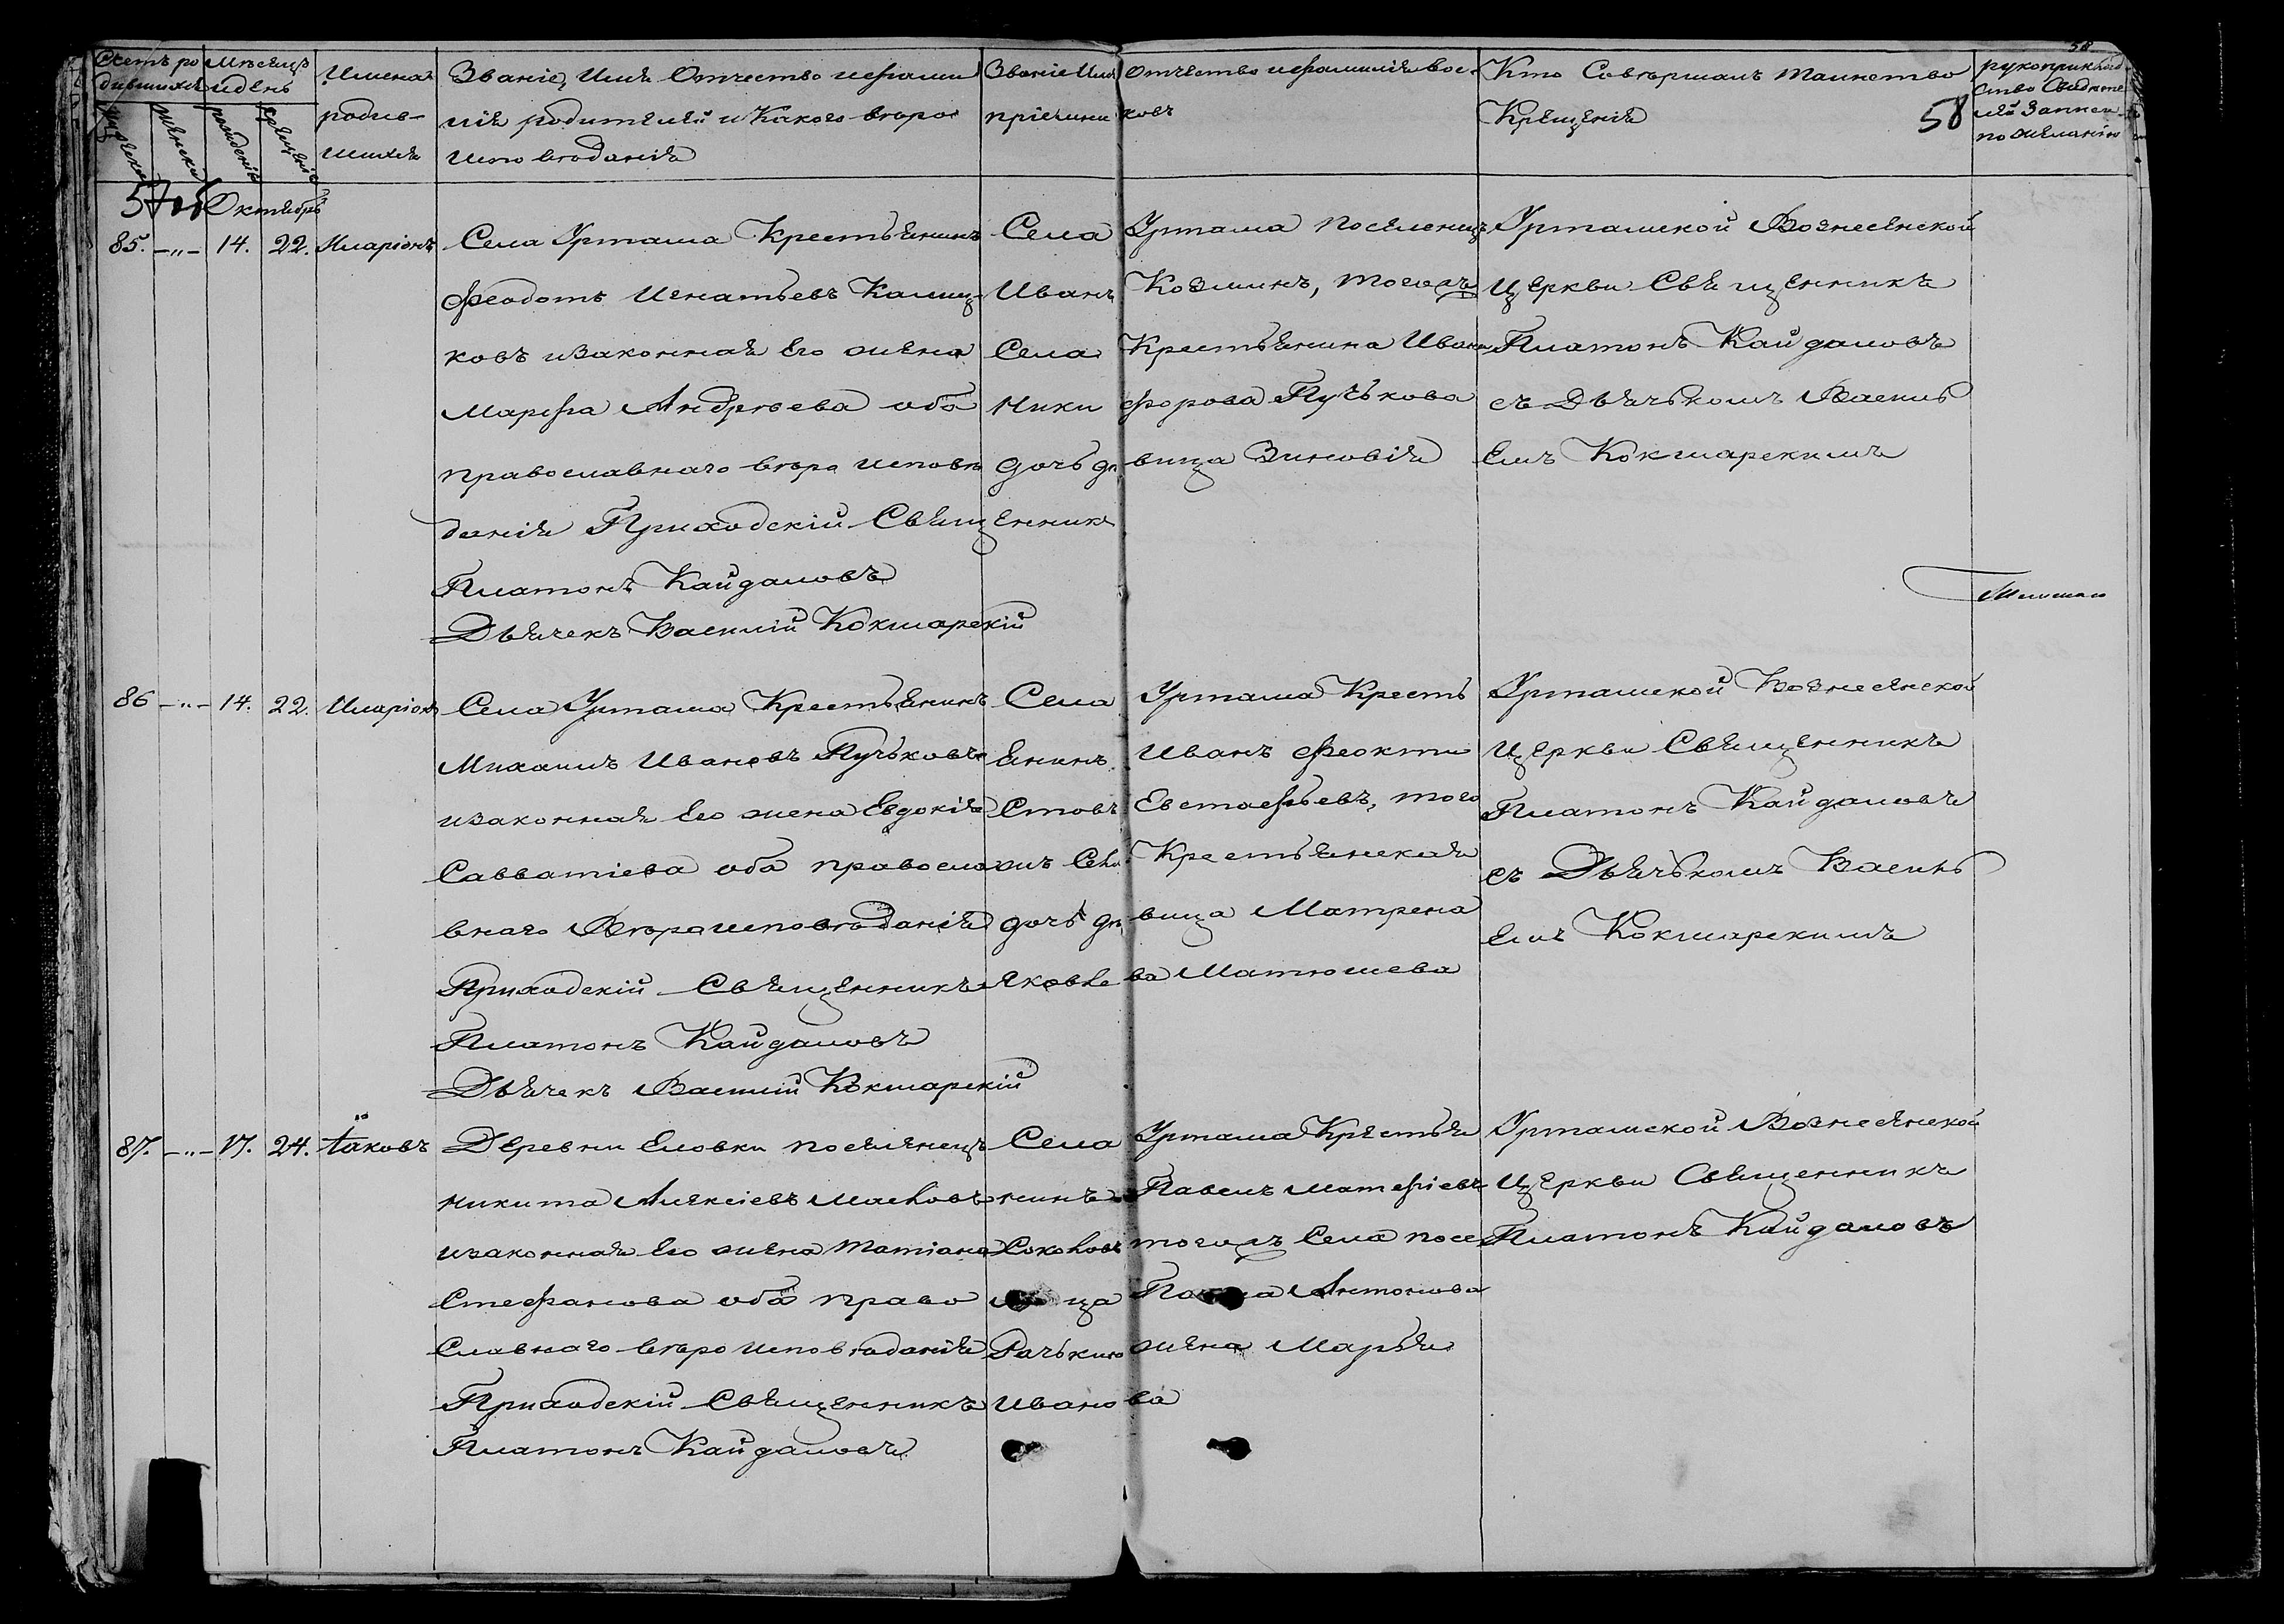 58
Счетъ ро Мѣсяцъ
дившихся и день
Имена
родив-
шихся
Званіе, Имя Отчество и фами
лія родителей и Какого вѣро
исповѣданія
Званіе Имя Отчество и фамилія вос-
пріемни ковъ
Кто Совершалъ таинство
Крещенія
58
рукоприклад
ство Свидѣте
лей Записи
по желанію
мужеска
женска
рожденія
крещенія
Октябрь
85. -"- 14. 22. Иларіонъ
Села Уртама Крестьянинъ
Феодотъ Игнатьевъ
ковъ и законная Его жена
Марфа Андреева оба
православнаго вѣро исповѣ
данія Приходскій Священникъ
Платонъ Кайдаловъ
Дьячекъ Василій Кокшарскій
Села Уртама Поселенецъ
Иванъ Козминъ, тогожъ
Села Крестьянина Ивана
Ники форова Пучькова
дочь дѣвица Зиновія
Уртамской Вознесенской
Церкви Священникъ
Платонъ Кайдаловъ
съ Дьячькомъ Василь
Емъ Кокшарскимъ
86 -"- 14. 22. Иларіонъ
Села Уртама Крестьянинъ
Михаилъ Ивановъ Пучьковъ
и законная Его жена Евдокія
Савватіева оба правосла
внаго Вѣроисповѣданія
Приходскій Священникъ
Платонъ Кайдаловъ
Дьячекъ Василій Кокшарскій
Села Уртама Кресть
Янинъ Иванъ Феокти
Стовъ Евстафьевъ, того
жъ Села Крестьянская
дочь дѣвица Матрена
Яковлева Матюшева
Уртамской Вознесенской
Церкви Священникъ
Платонъ Кайдаловъ
съ Дьячькомъ Василь
Емъ Кокшарскимъ
87. -"- 17. 24. Іаковъ
Деревни Еловки поселенецъ
Никита Алексіевъ Масловъ
и законная Его жена Татіана
Стефанова оба право
Славнаго вѣро исповѣданія
Приходскій Священникъ
Платонъ Кайдаловъ
Села Уртама Крестья
нинъ Павелъ Матфіевъ
Соколовъ тогожъ Села посе
ца Антонова
Рачькина жена Марья
Иванова
Уртамской Вознесенской
Церкви Священникъ
Платонъ Кайдаловъ